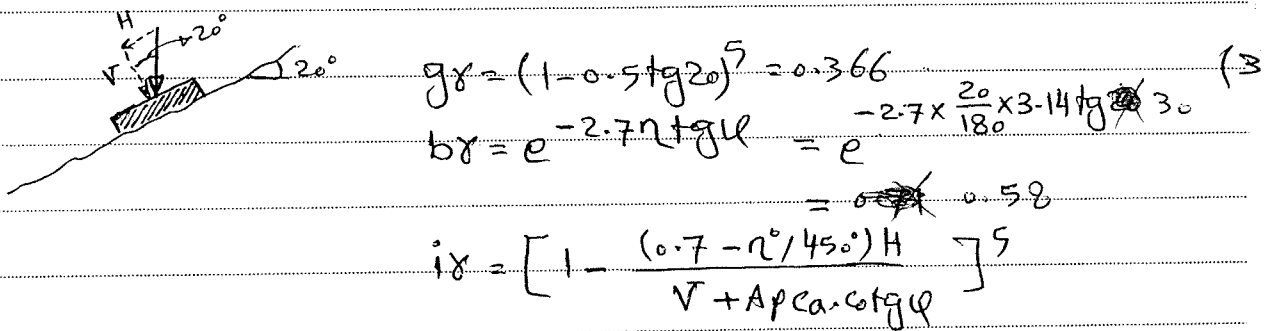 H
20°
V
20°
gγ = (1-0.5tg20)^5 = 0.366
(3
bγ = e^(-2.7ηtgφ) = e^(-2.7×20/180×3.14tg30)
= 0.58
iγ = [1 - (0.7-η°/450°)H / (V + Apca.cotgφ)]^5